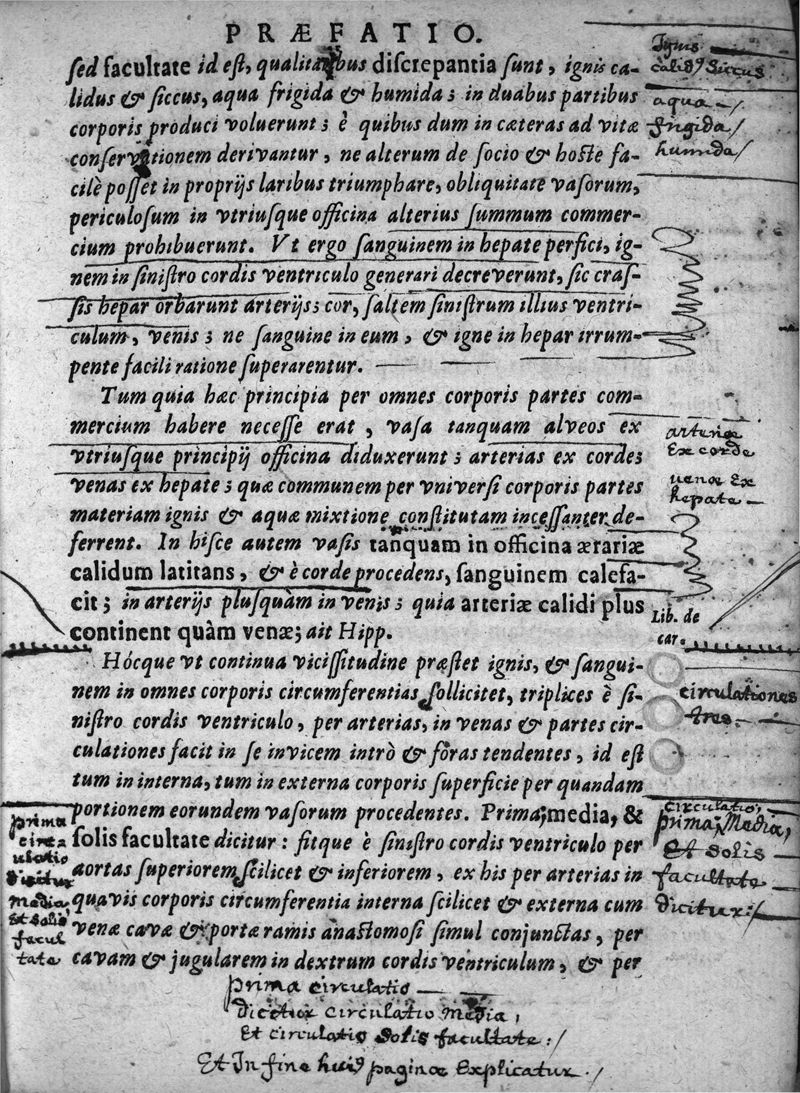 PRÆFATIO.
sed facultate id est, qualitatibus discrepantia sunt, ignis ca-
lidus & siccus, aqua frigida & humida; in duabus partibus
corporis produci voluerunt; è quibus dum in cæteras ad vitæ
conservationem derivantur, ne alterum de socio & hoste fa-
cilè posset in proprijs laribus triumphare, obliquitate vasorum,
periculosum in vtriusque officina alterius summum commer-
cium prohibuerunt. Vt ergo sanguinem in hepate perfici, ig-
nem in sinistro cordis ventriculo generari decreverunt, sic cras-
sis hepar orbarunt arterijs; cor, saltem sinistrum illius ventri-
culum, venis; ne sanguine in eum, & igne in hepar irrum-
pente facili ratione superarentur.
Tum quia hæc principia per omnes corporis partes com-
mercium habere necesse erat, vasa tanquam alveos ex
vtriusque principij officina diduxerunt; arterias ex corde;
venas ex hepate; quæ communem per vniversi corporis partes
materiam ignis & aquæ mixtione constitutam incessanter de-
ferrent. In hisce autem vasis tanquam in officina ærariæ
calidum latitans, & è corde procedens, sanguinem calefa-
cit; in arterijs plusquàm in venis; quia arteriæ calidi plus
continent quàm venæ; ait Hipp.
Lib. de
car.
Hócque vt continua vicissitudine præstet ignis, & sangui-
nem in omnes corporis circumferentias sollicitet, triplices è si-
nistro cordis ventriculo, per arterias, in venas & partes cir-
culationes facit in se invicem intrò & foras tendentes, id est
tum in interna, tum in externa corporis superficie per quandam
portionem eorundem vasorum procedentes. Prima; media, &
solis facultate dicitur: fitque è sinistro cordis ventriculo per
aortas superiorem scilicet & inferiorem, ex his per arterias in
quavis corporis circumferentia interna scilicet & externa cum
venæ cavæ & portæ ramis anastomosi simul conjunctas, per
cavam & jugularem in dextrum cordis ventriculum, & per
Ignis
calidus Siccus
aqua
frigida/
humida/
arteriæ
Ex corde
uenæ Ex
hepate
circulationes
tres
circulatio,
prima; Media,
Et solis
facultate
dicitur:/
prima
circu
ulatio
dicitur
Media
Et solis
facul
tate
prima circulatio
dicitur circulatio Media,
Et circulatio solis facultate:/
Et In fine huius paginæ Explicatur./